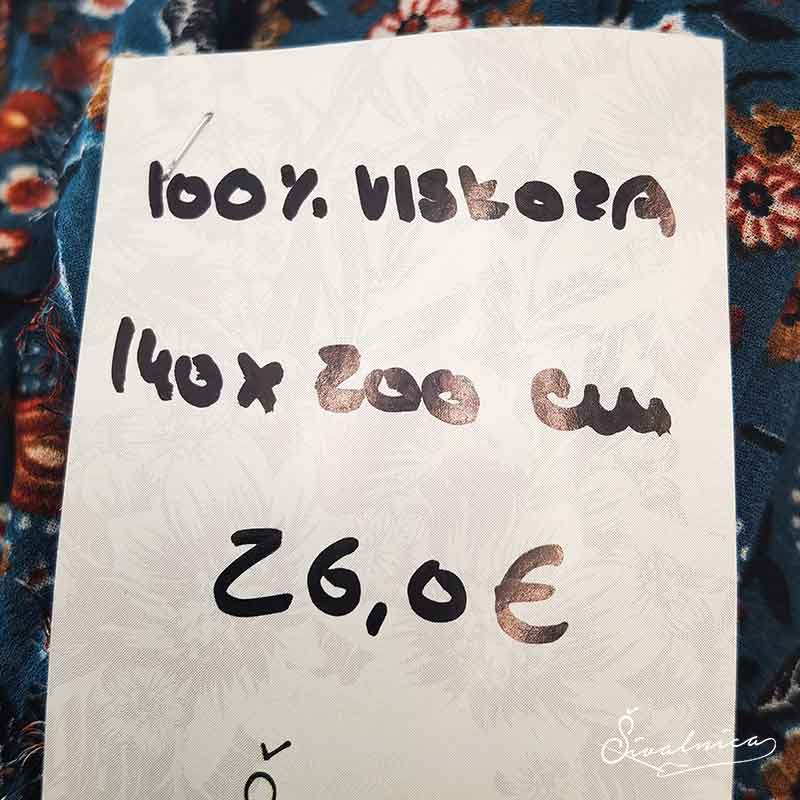 100% VISKOZA
140 x 200 cm
26,0 €
Šivalnica